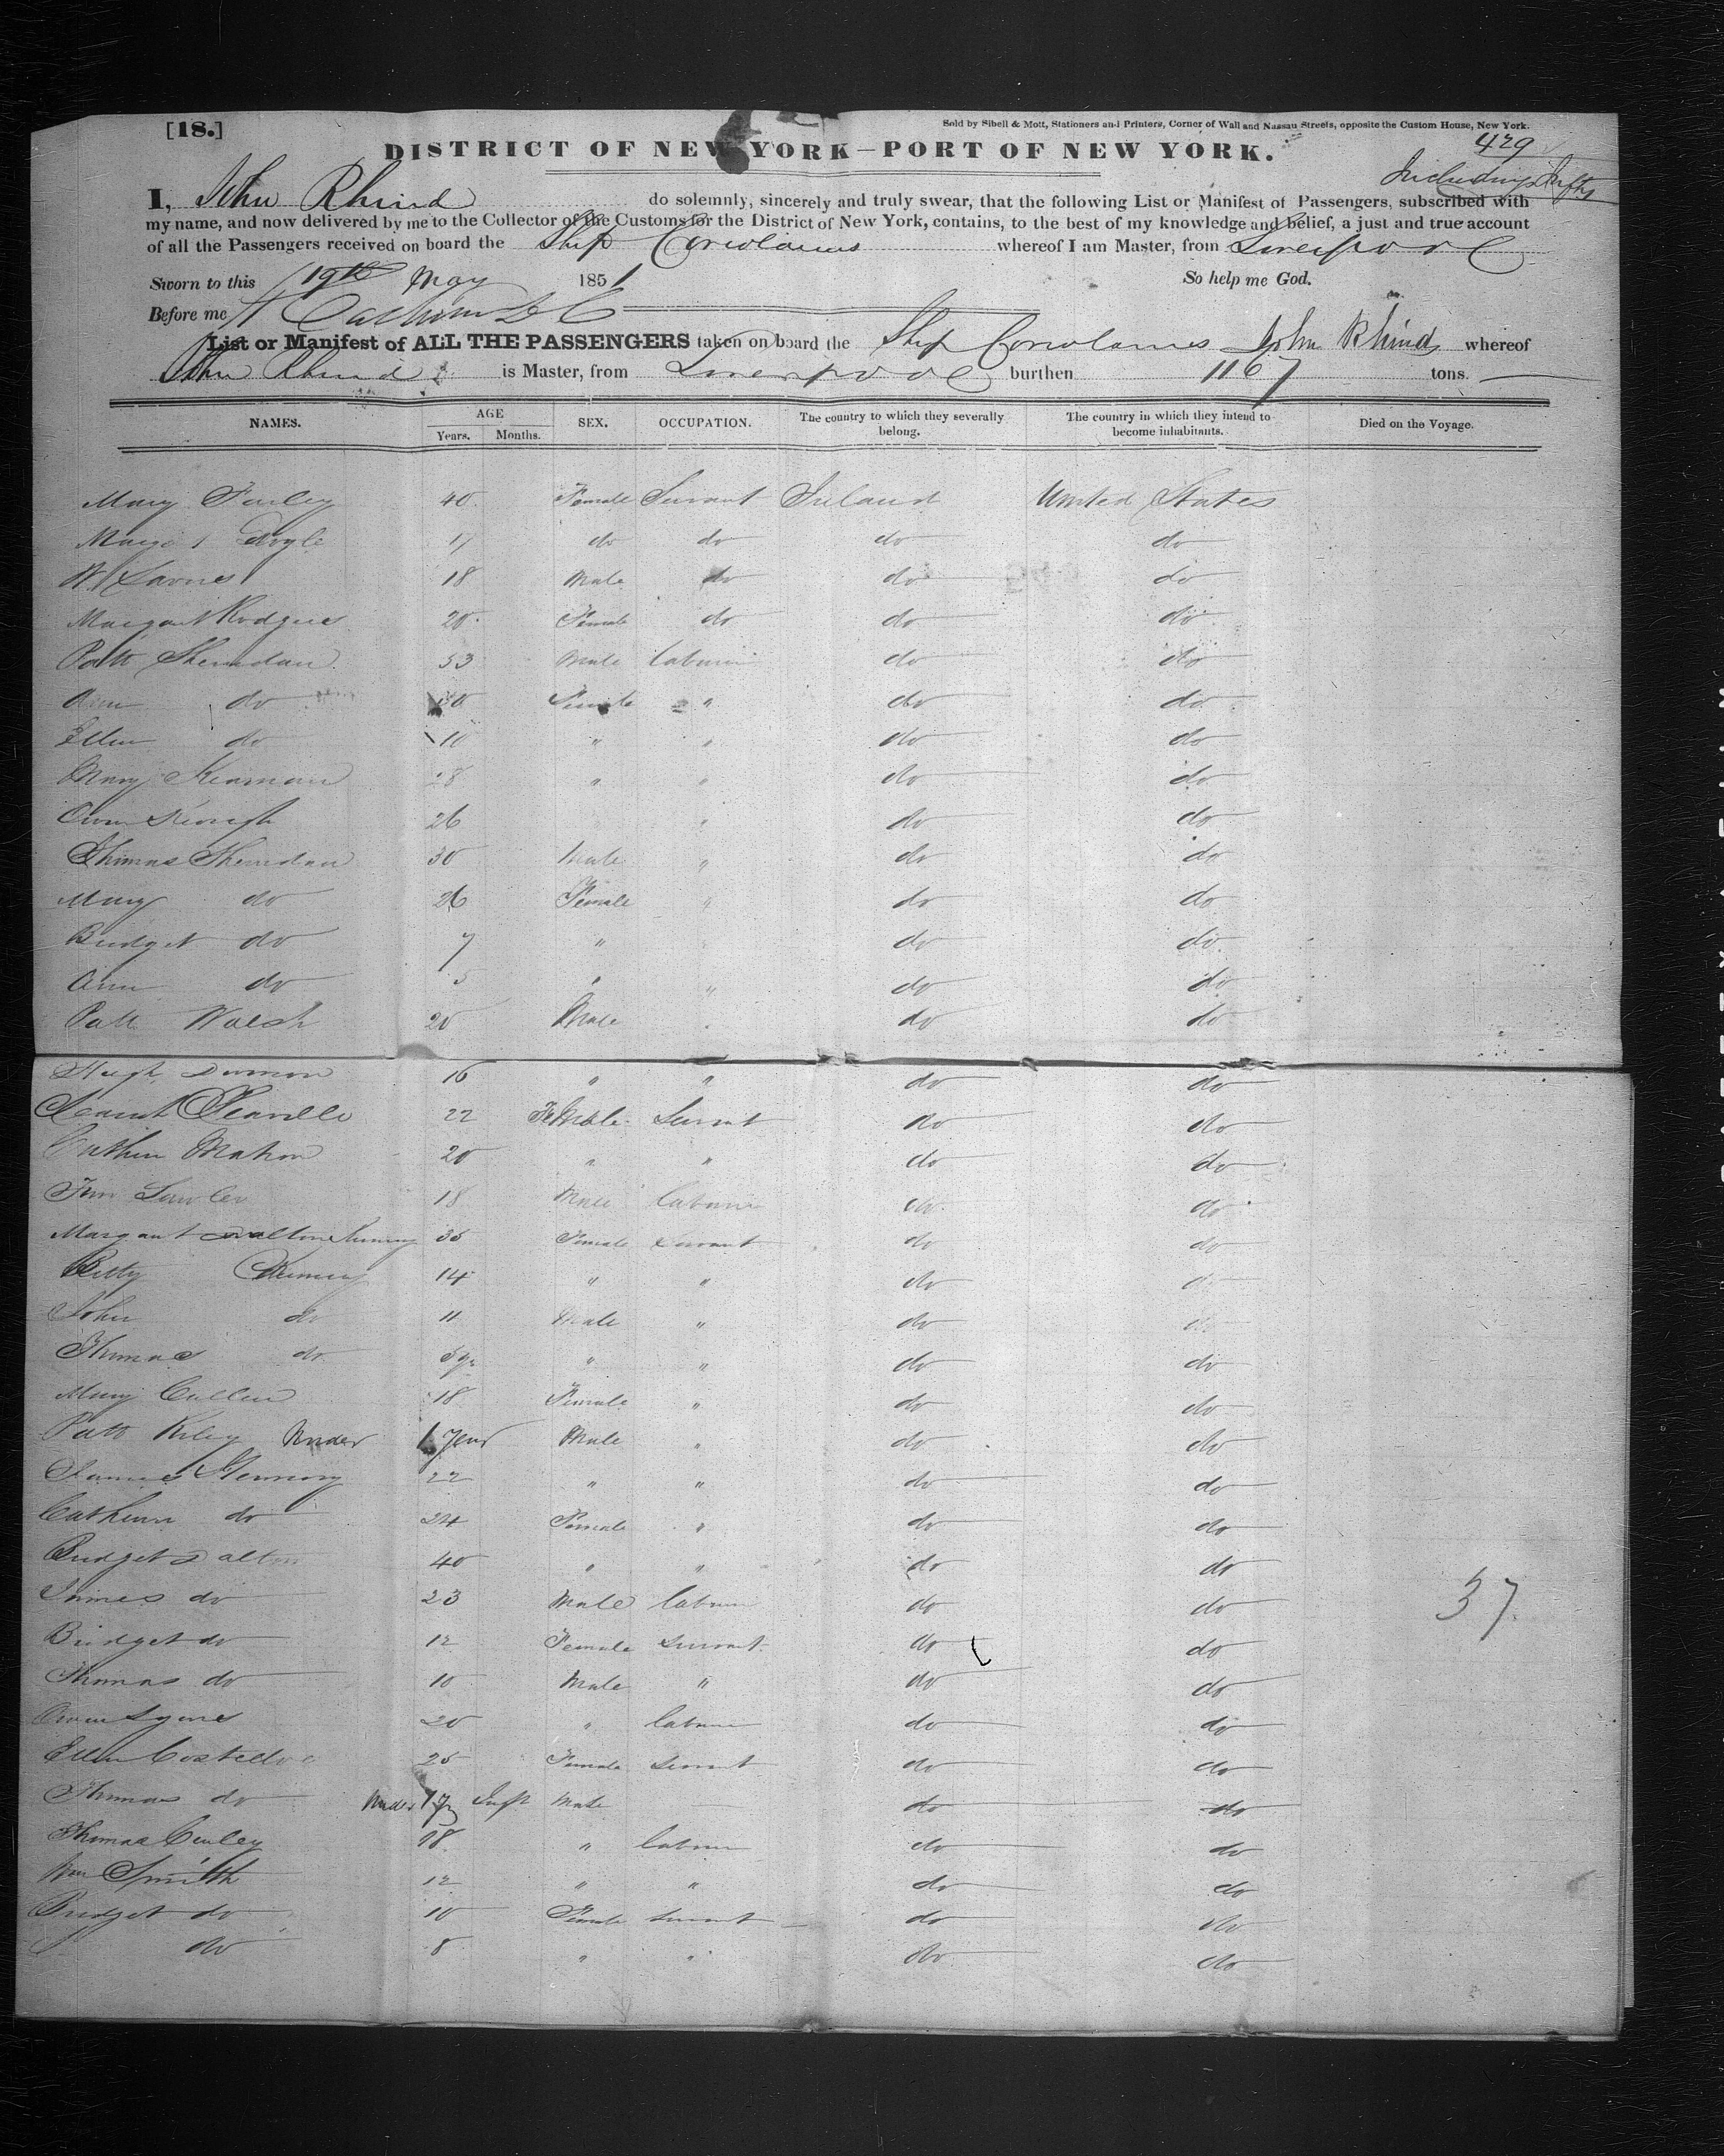 [18.]
Sold by Sibell & Mott, Stationers and Printers, Corner of Wall and Nassau Streets, opposite the Custom House, New York.
DISTRICT OF NEW YORK—PORT OF NEW YORK.
429
Including Infts
I, John Rhind do solemnly, sincerely and truly swear, that the following List or Manifest of Passengers, subscribed with
my name, and now delivered by me to the Collector of the Customs for the District of New York, contains, to the best of my knowledge and belief, a just and true account
of all the Passengers received on board the Ship Coriolanus whereof I am Master, from Liverpool
Sworn to this 19th May 1851 So help me God.
Before me
List or Manifest of ALL THE PASSENGERS taken on board the Ship Coriolanus John Rhind whereof
John Rhind is Master, from Liverpool burthen 1167 tons.
NAMES. AGE Years. Months. SEX. OCCUPATION. The country to which they severally belong. The country in which they intend to become inhabitants. Died on the Voyage.
Mary Farley 40 Female Servant Ireland United States
Doyle 17 do do do do
18 Male do do do
Margaret Rodgers 20 Female do do do
Patt Sheridan 33 Male labourer do do
Ann do 30 Female " do do
Ellen do 10 " " do do
Mary Kiernan 28 " " do do
Keough 26 " do do
Thomas Sheridan 30 Male " do do
Mary do 26 Female " do do
Bridget do 7 " " do do
Ann do 5 " " do do
Patt Walsh 20 Male " do do
Hugh 16 " " do do
22 Female Servant do do
Mahon 20 " " do do
Lawler 18 Male labourer do do
Margaret Dalton 35 Female Servant do do
Betty 14 " " do do
John do 11 Male " do do
Thomas do 9 " " do do
Mary Cullen 18 Female " do do
Patt Riley Under 1 Year Male " do do
James 22 " " do do
Catherine do 24 Female " do do
Bridget Dalton 40 " " do do
James do 23 Male labourer do do
Bridget do 12 Female Servant do do
Thomas do 10 Male " do do
Owen Lyons 20 " labourer do do
Ellen Costelloe 25 Female Servant do do
Thomas do Under 1 Inft Male do do
Thomas 18 " labourer do do
Wm Smith 12 " " do do
Bridget do 10 Female Servant do do
do 8 " " do do
37